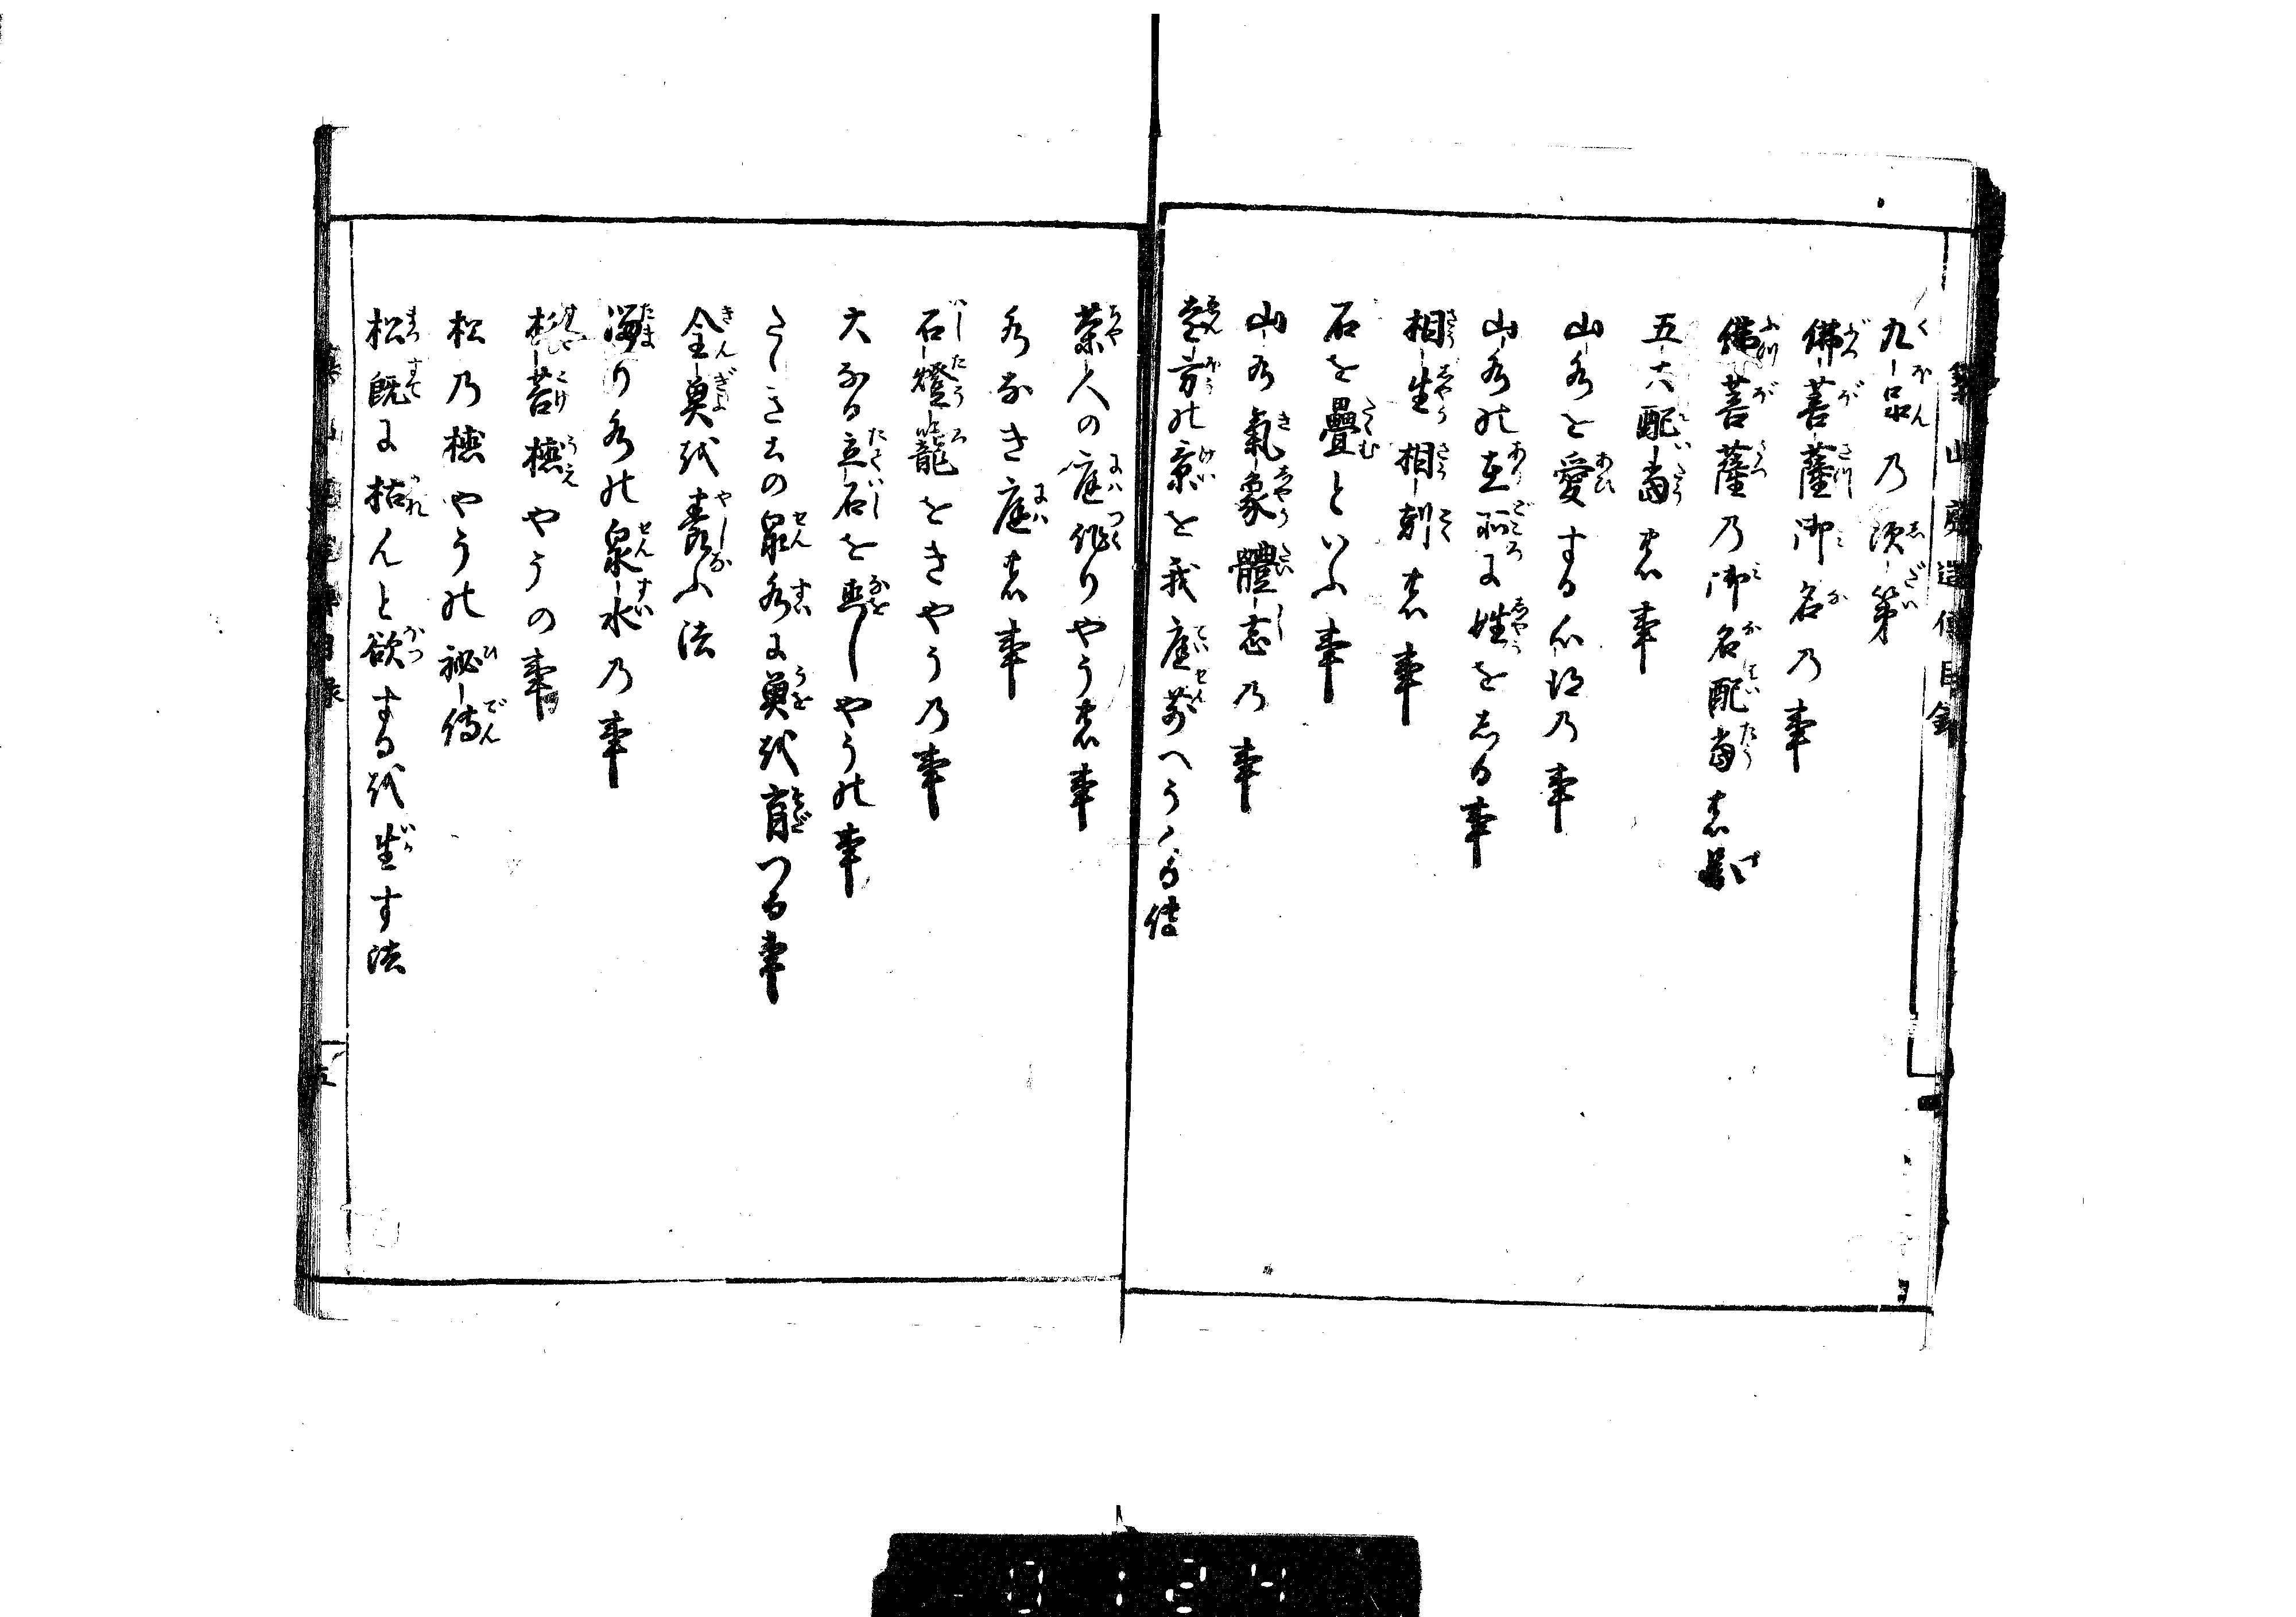 築山庭造傳目録
九品乃次第
佛菩薩御名乃事
佛菩薩乃御名配當之
五大配當之事
山水を愛する心得乃事
山水の在所に姓をしる事
相生相剋之事
石を疊といふ事
山水氣象體志乃事
遠方の景を我庭前へうくる傳
茶人の庭作りやう之事
水なき庭之事
石燈籠をきやう乃事
大なる立石を興しやうの事
の泉水に魚を育つる事
金魚を養ふ法
溜り水の泉水乃事
苔植やうの事
松乃植やうの秘傳
松既に枯んと欲するを生す法
五
0124